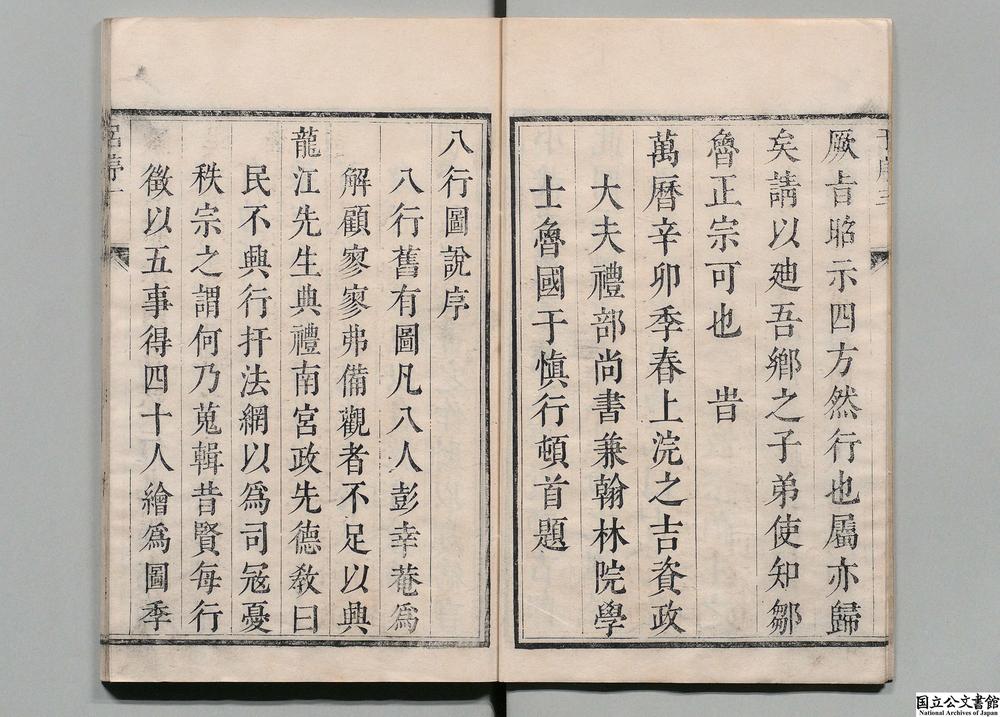 厥旨昭示四方然行也屬亦歸
矣請以廸吾鄉之子弟使知鄒
魯正宗可也　旹
萬曆辛卯季春上浣之吉資政
大夫禮部尚書兼翰林院學
士魯國于慎行頓首題
八行圖說序
八行舊有圖凡八人彭幸菴為
解顧寥寥弗備觀者不足以興
龍江先生典禮南宮政先德教曰
民不興行扞法網以為司冦憂
秩宗之謂何乃蒐輯昔賢每行
徵以五事得四十人繪為圖季
国立公文書館
National Archives of Japan